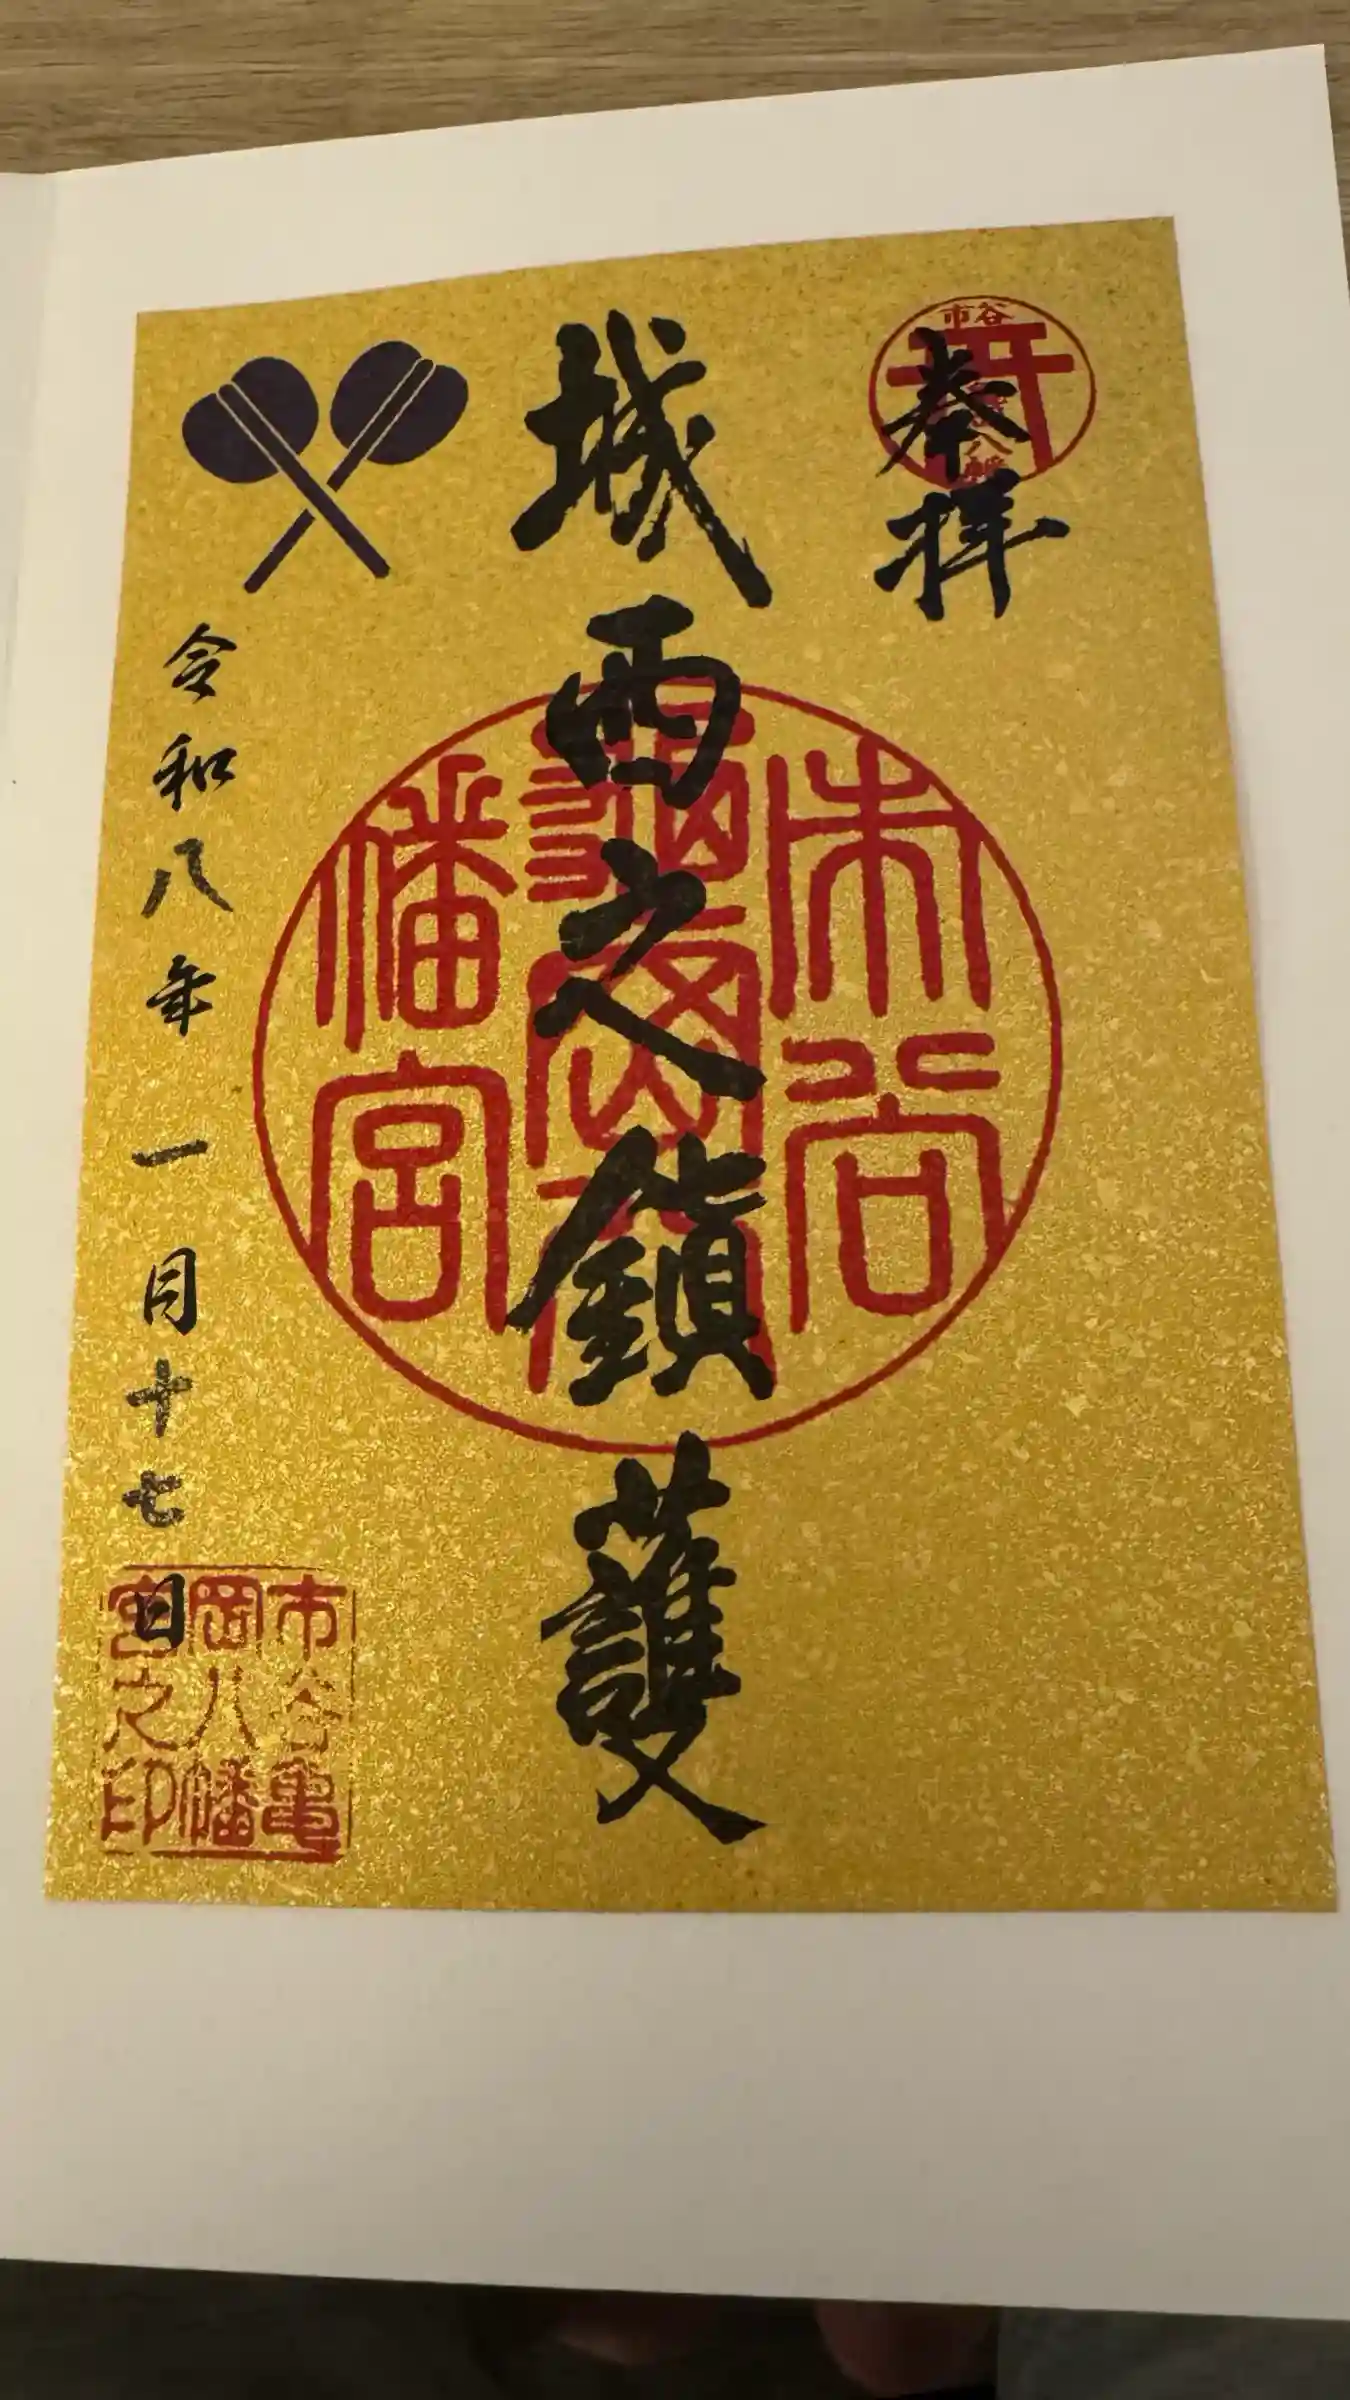 奉拝
市谷
八幡
城西之鎮護
市谷亀岡八幡宮
令和八年一月十七日
市谷亀
岡八幡
宮之印